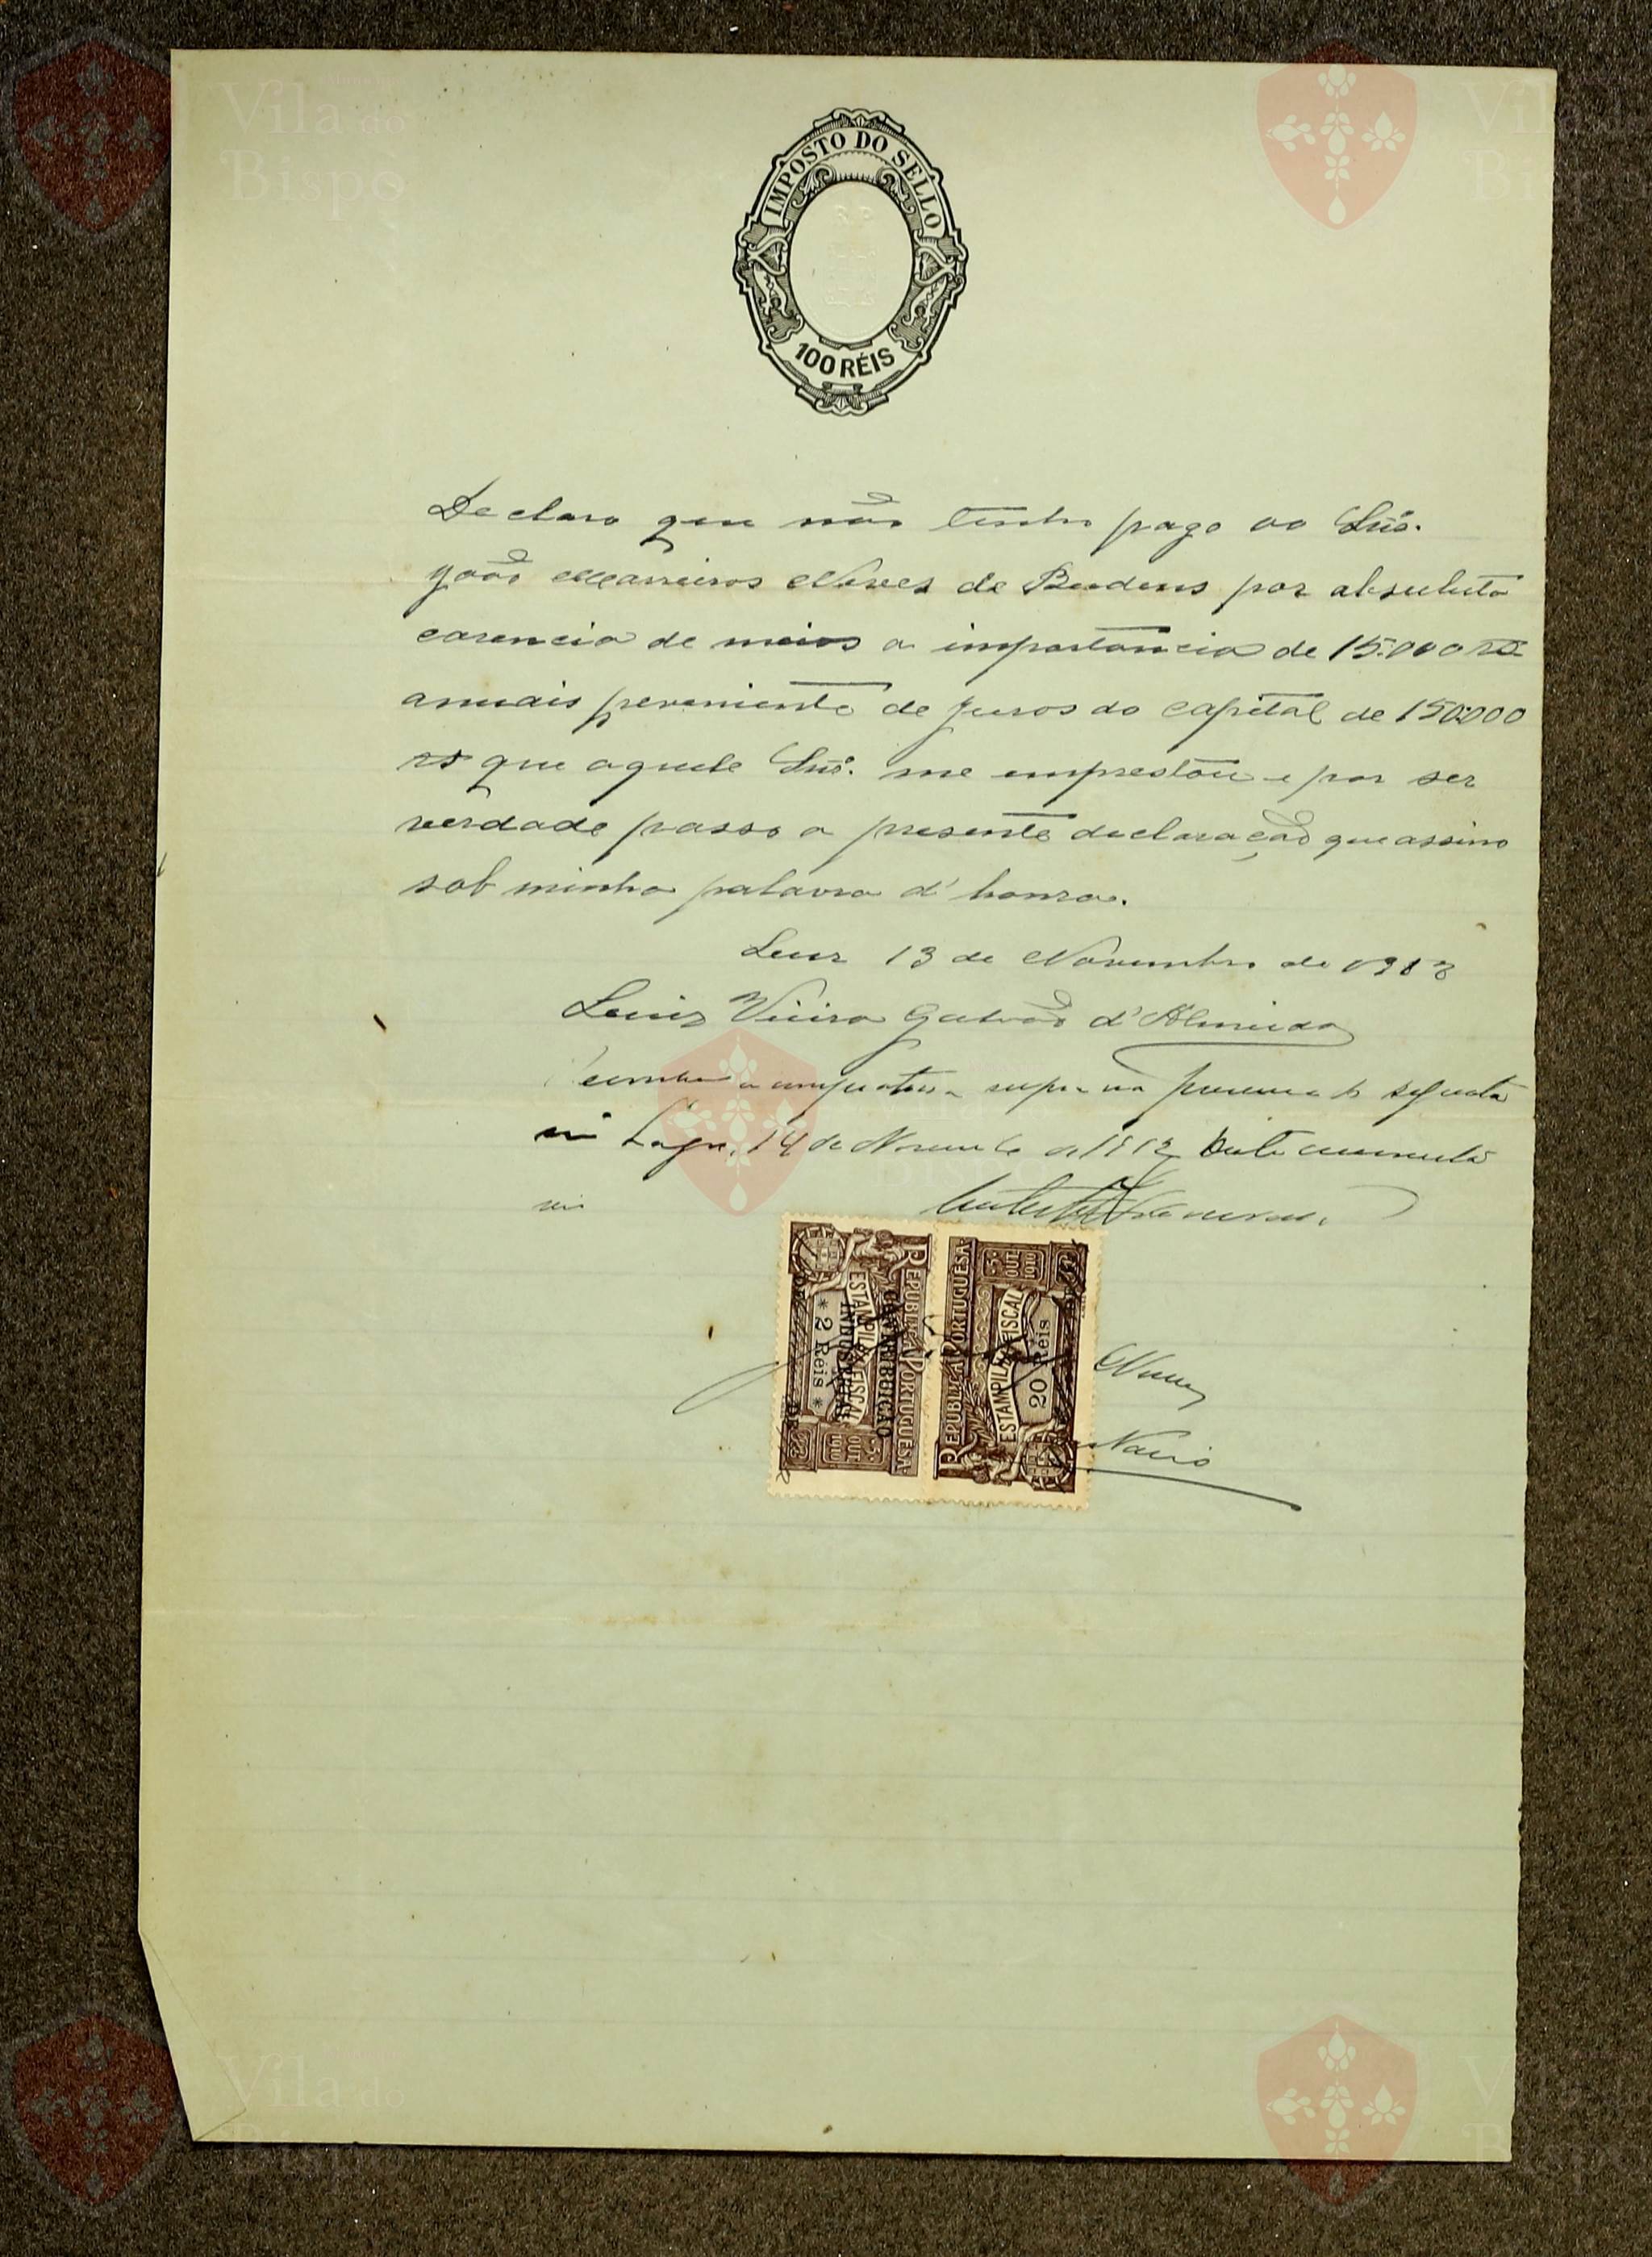 IMPOSTO DO SELLO
100 RÉIS
Declaro que não tenho pago ao Snr.
João Marreiros Neves de Budens por absuluta
carencia de meios a importancia de 15:000 rs.
anuais preveniente de juros do capital de 150:000
rs que aquele Snr. me emprestou e por ser
verdade passo a presente declaração que assino
sob minha palavra d'honra.
Luz 13 de Novembro de 1912
Luiz Vieira Galvão d'Almeida
a supra na
Lagos, 14 de Novembro de 1912
REPUBLICA PORTUGUESA
ESTAMPILHA FISCAL
* 2 Réis *
CONTRIBUIÇÃO
INDUSTRIAL
5. OUT. 1910
REPUBLICA PORTUGUESA
ESTAMPILHA FISCAL
20 Réis
5. OUT. 1910
Vila do
Bispo